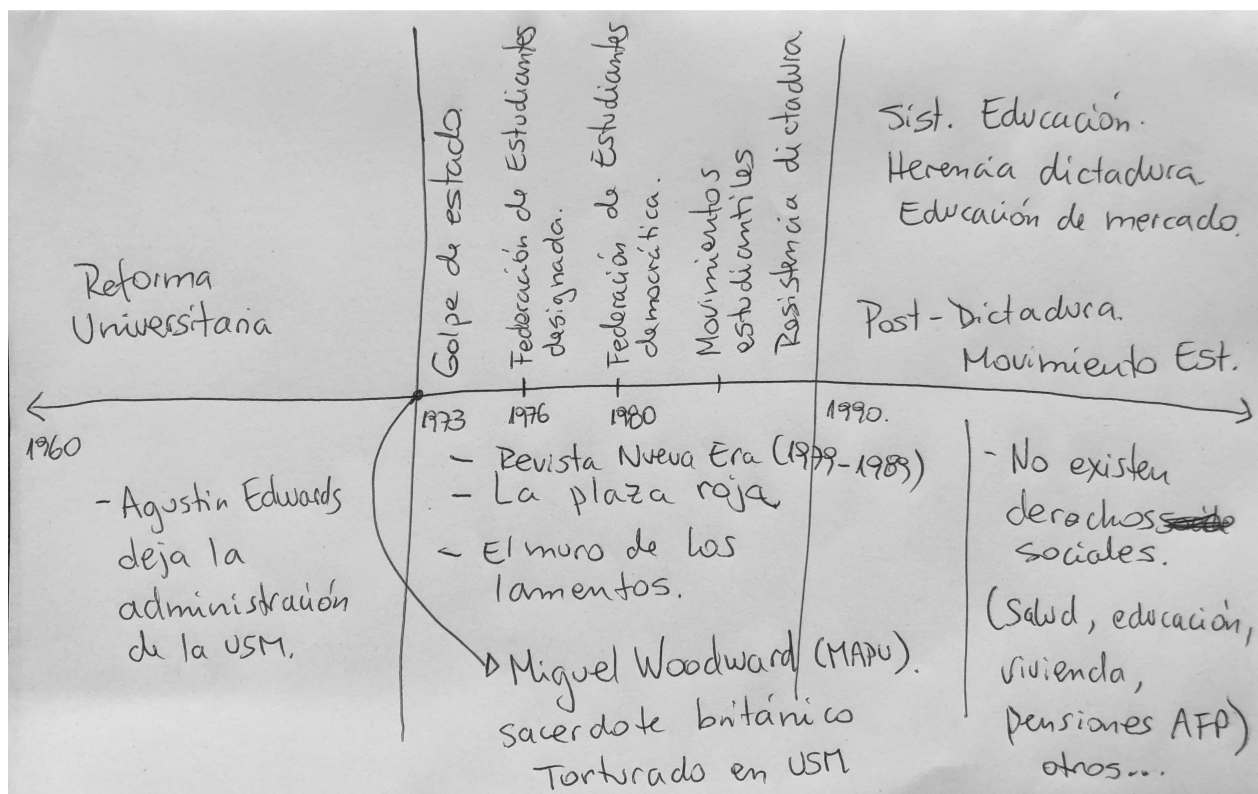 Reforma
Universitaria
Golpe de estado.
Federación de Estudiantes
designada.
Federación de Estudiantes
democrática.
Movimientos
estudiantiles
Resistencia dictadura
Sist. Educación.
Herencia dictadura
Educación de mercado.
Post-Dictadura.
Movimiento Est.
1960
1973
1976
1980
1990.
- Agustin Edwards
deja la
administración
de la USM.
- Revista Nueva Era (1979-1989)
- La plaza roja
- El muro de los
lamentos.
Miguel Woodward (MAPU).
sacerdote británico
Torturado en USM
- No existen
derechos
sociales.
(Salud, educación,
vivienda,
pensiones AFP)
otros...